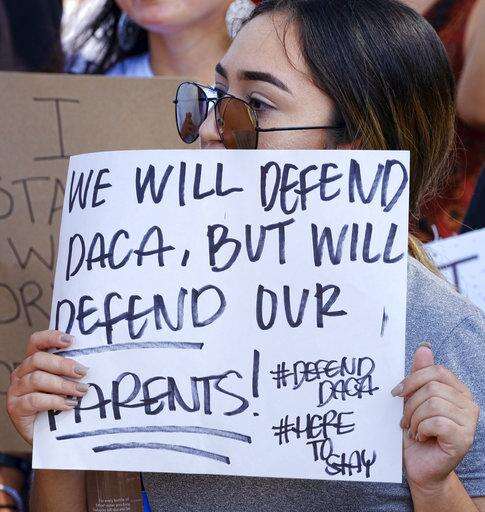 WE WILL DEFEND
DACA, BUT WILL
DEFEND OUR
PARENTS!
#DEFEND
DACA
#HERE
TO
STAY
I